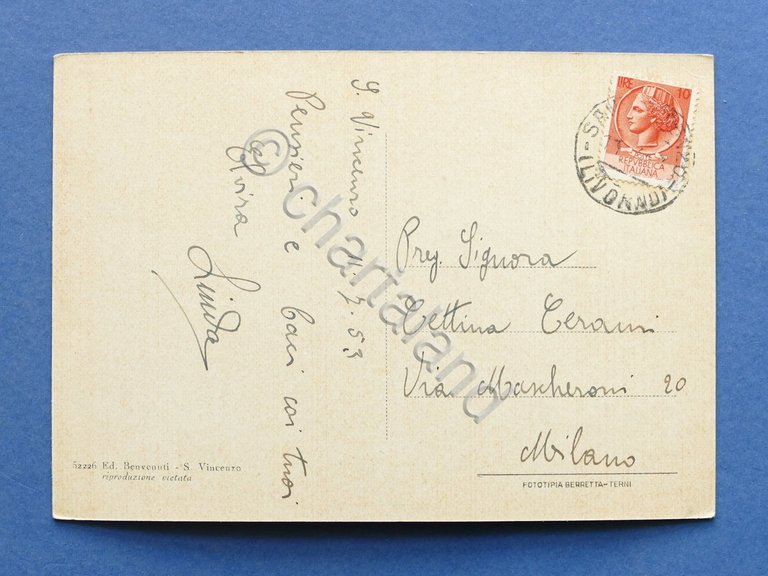 S. Vincenzo 11.7.53
Pensieri e baci coi tuoi
Elvira
Linda
LIRE 10
REPVBBLICA
ITALIANA
(LIVORNO)
Preg. Signora
Cettina Terauni
Via Mascheroni 20
Milano
52226 Ed. Benvenuti - S. Vincenzo
riproduzione vietata
FOTOTIPIA BERRETTA-TERNI
© chartaland